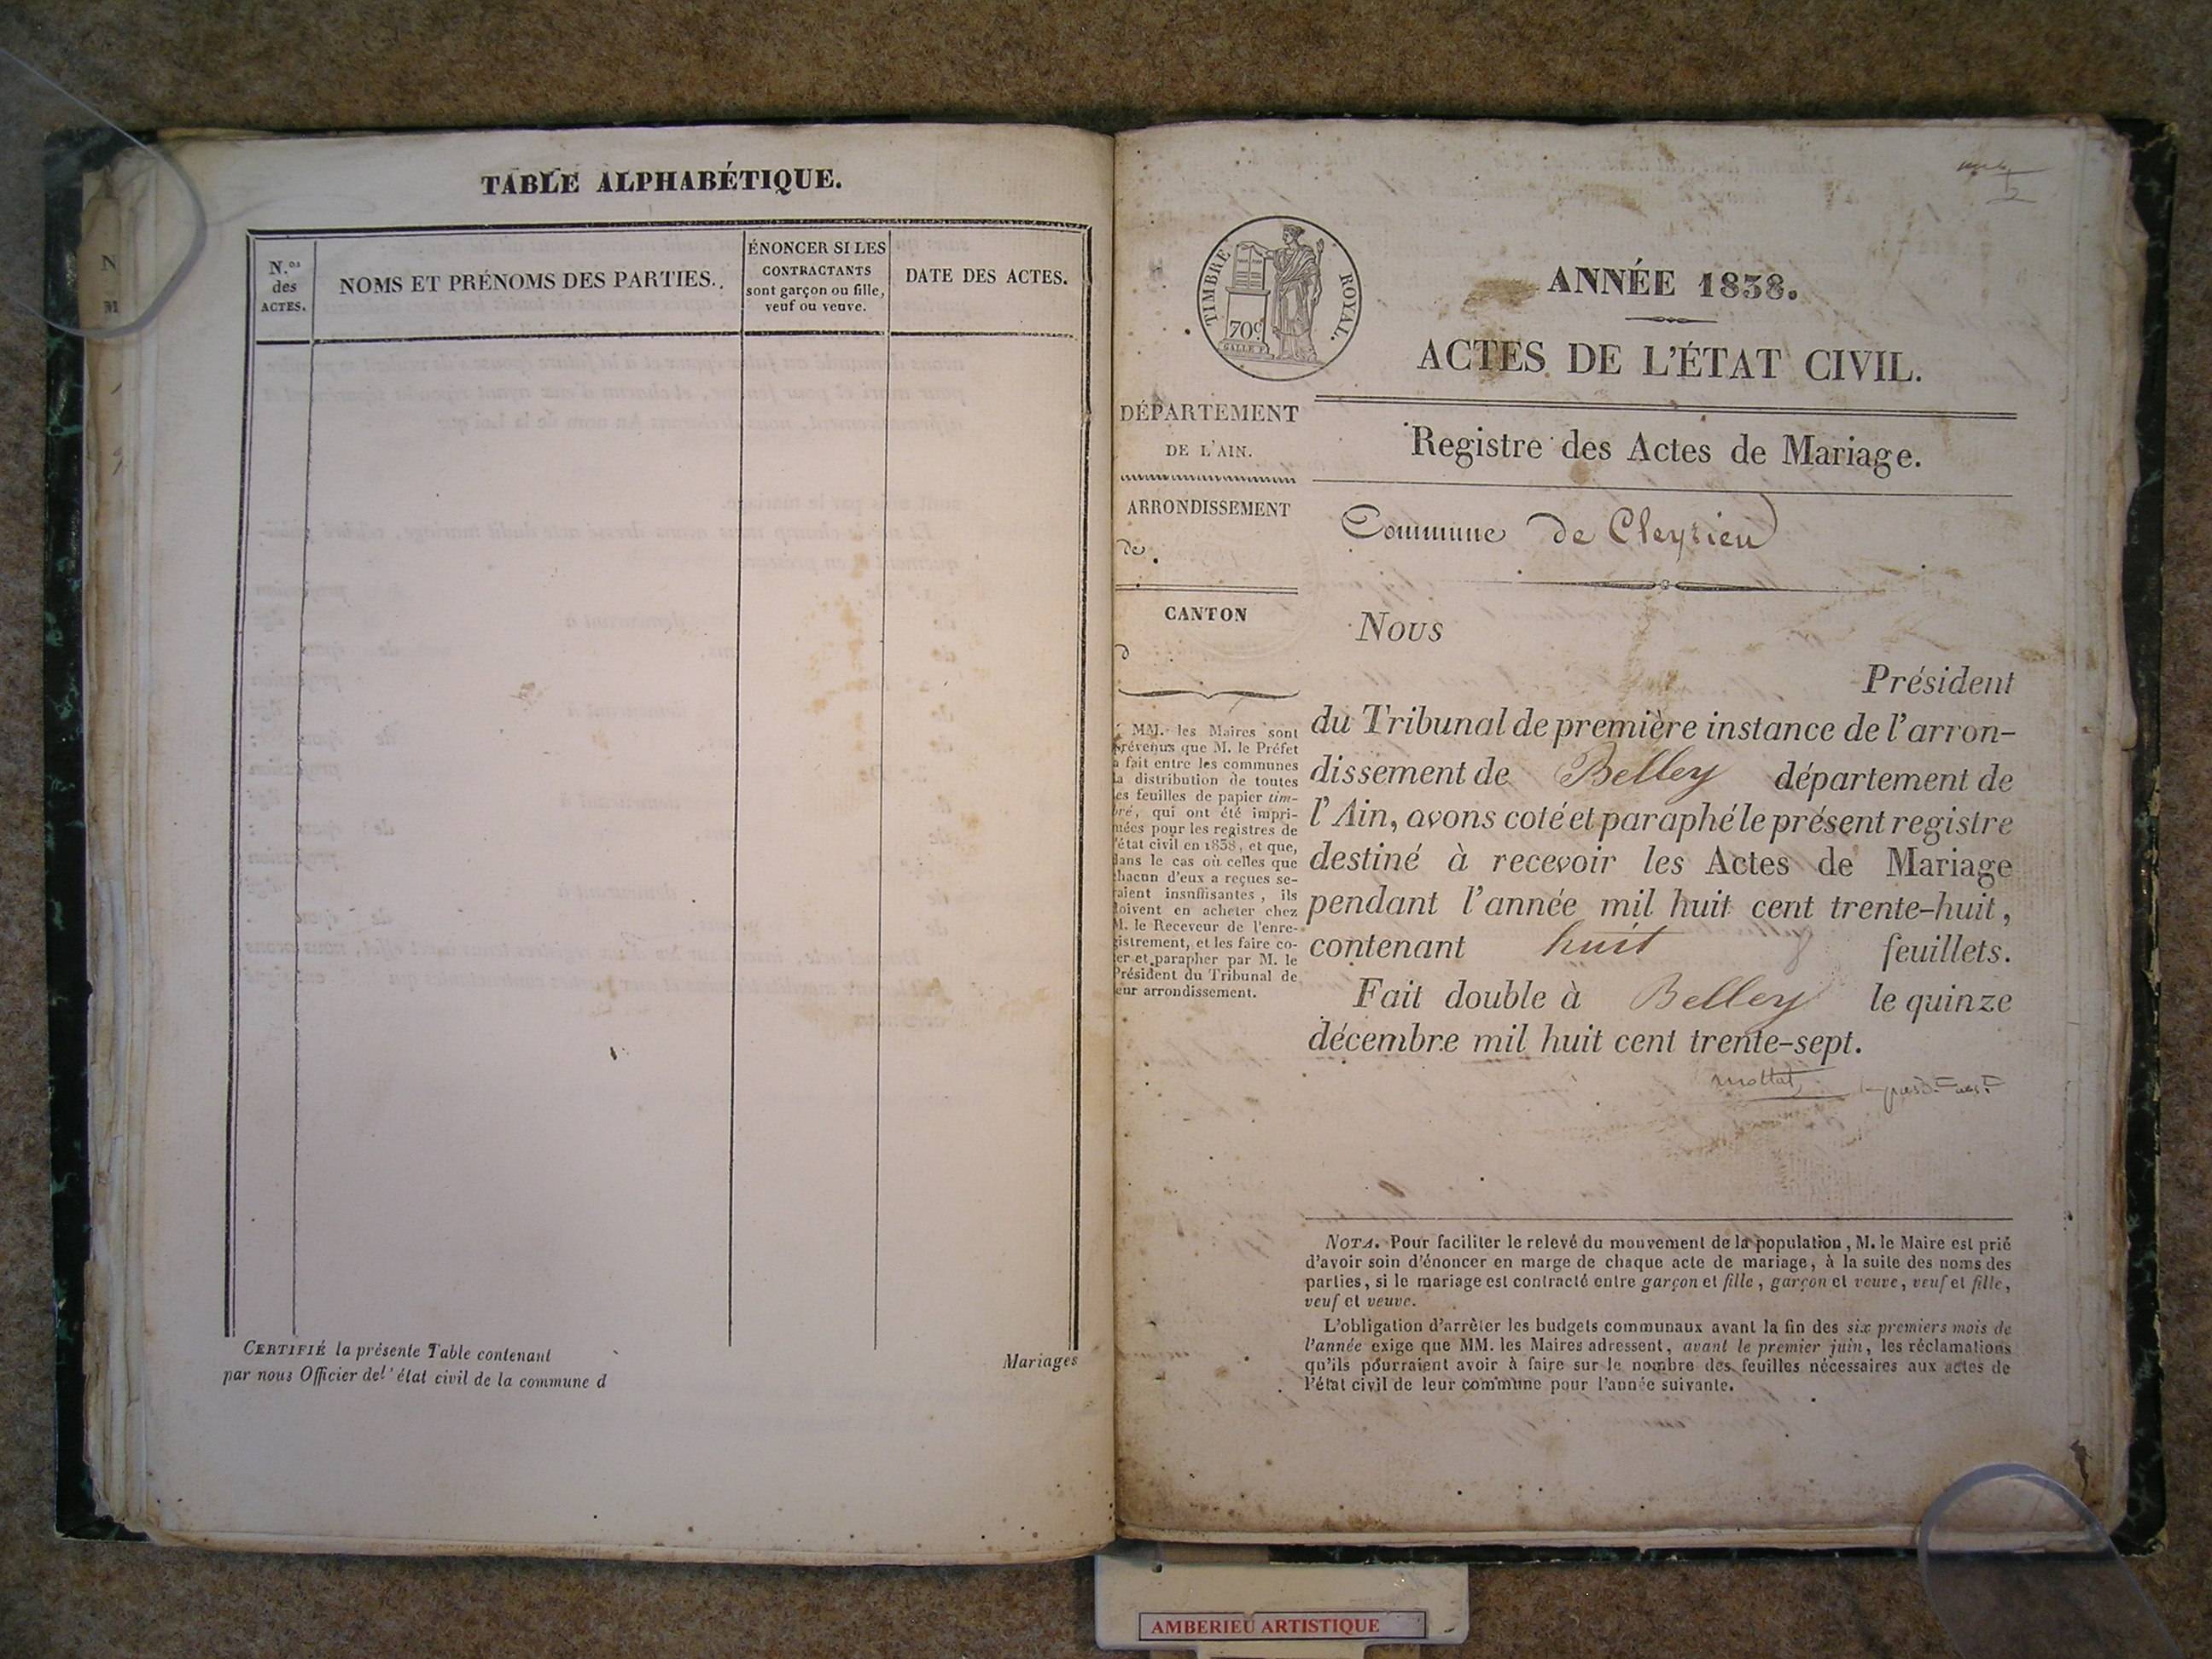 TABLE ALPHABÉTIQUE.
N.os des ACTES.
NOMS ET PRÉNOMS DES PARTIES.
ÉNONCER SI LES
CONTRACTANTS
sont garçon ou fille,
veuf ou veuve.
DATE DES ACTES.
CERTIFIÉ la présente Table contenant
par nous Officier de l'état civil de la commune d
Mariages
TIMBRE ROYAL.
70c
ANNÉE 1838.
ACTES DE L'ÉTAT CIVIL.
Registre des Actes de Mariage.
Commune de Cleyzieu
DÉPARTEMENT
DE L'AIN.
ARRONDISSEMENT
de
CANTON
d
MM. les Maires sont
prévenus que M. le Préfet
a fait entre les communes
la distribution de toutes
les feuilles de papier tim-
bré, qui ont été impri-
mées pour les registres de
l'état civil en 1838, et que,
dans le cas où celles que
chacun d'eux a reçues se-
raient insuffisantes, ils
doivent en acheter chez
M. le Receveur de l'enre-
gistrement, et les faire co-
ter et parapher par M. le
Président du Tribunal de
leur arrondissement.
Nous
Président
du Tribunal de première instance de l'arron-
dissement de Belley département de
l'Ain, avons coté et paraphé le présent registre
destiné à recevoir les Actes de Mariage
pendant l'année mil huit cent trente-huit,
contenant huit 8 feuillets.
Fait double à Belley le quinze
décembre mil huit cent trente-sept.
NOTA. Pour faciliter le relevé du mouvement de la population, M. le Maire est prié
d'avoir soin d'énoncer en marge de chaque acte de mariage, à la suite des noms des
parties, si le mariage est contracté entre garçon et fille, garçon et veuve, veuf et fille,
veuf et veuve.
L'obligation d'arrêter les budgets communaux avant la fin des six premiers mois de
l'année exige que MM. les Maires adressent, avant le premier juin, les réclamations
qu'ils pourraient avoir à faire sur le nombre des feuilles nécessaires aux actes de
l'état civil de leur commune pour l'année suivante.
AMBERIEU ARTISTIQUE